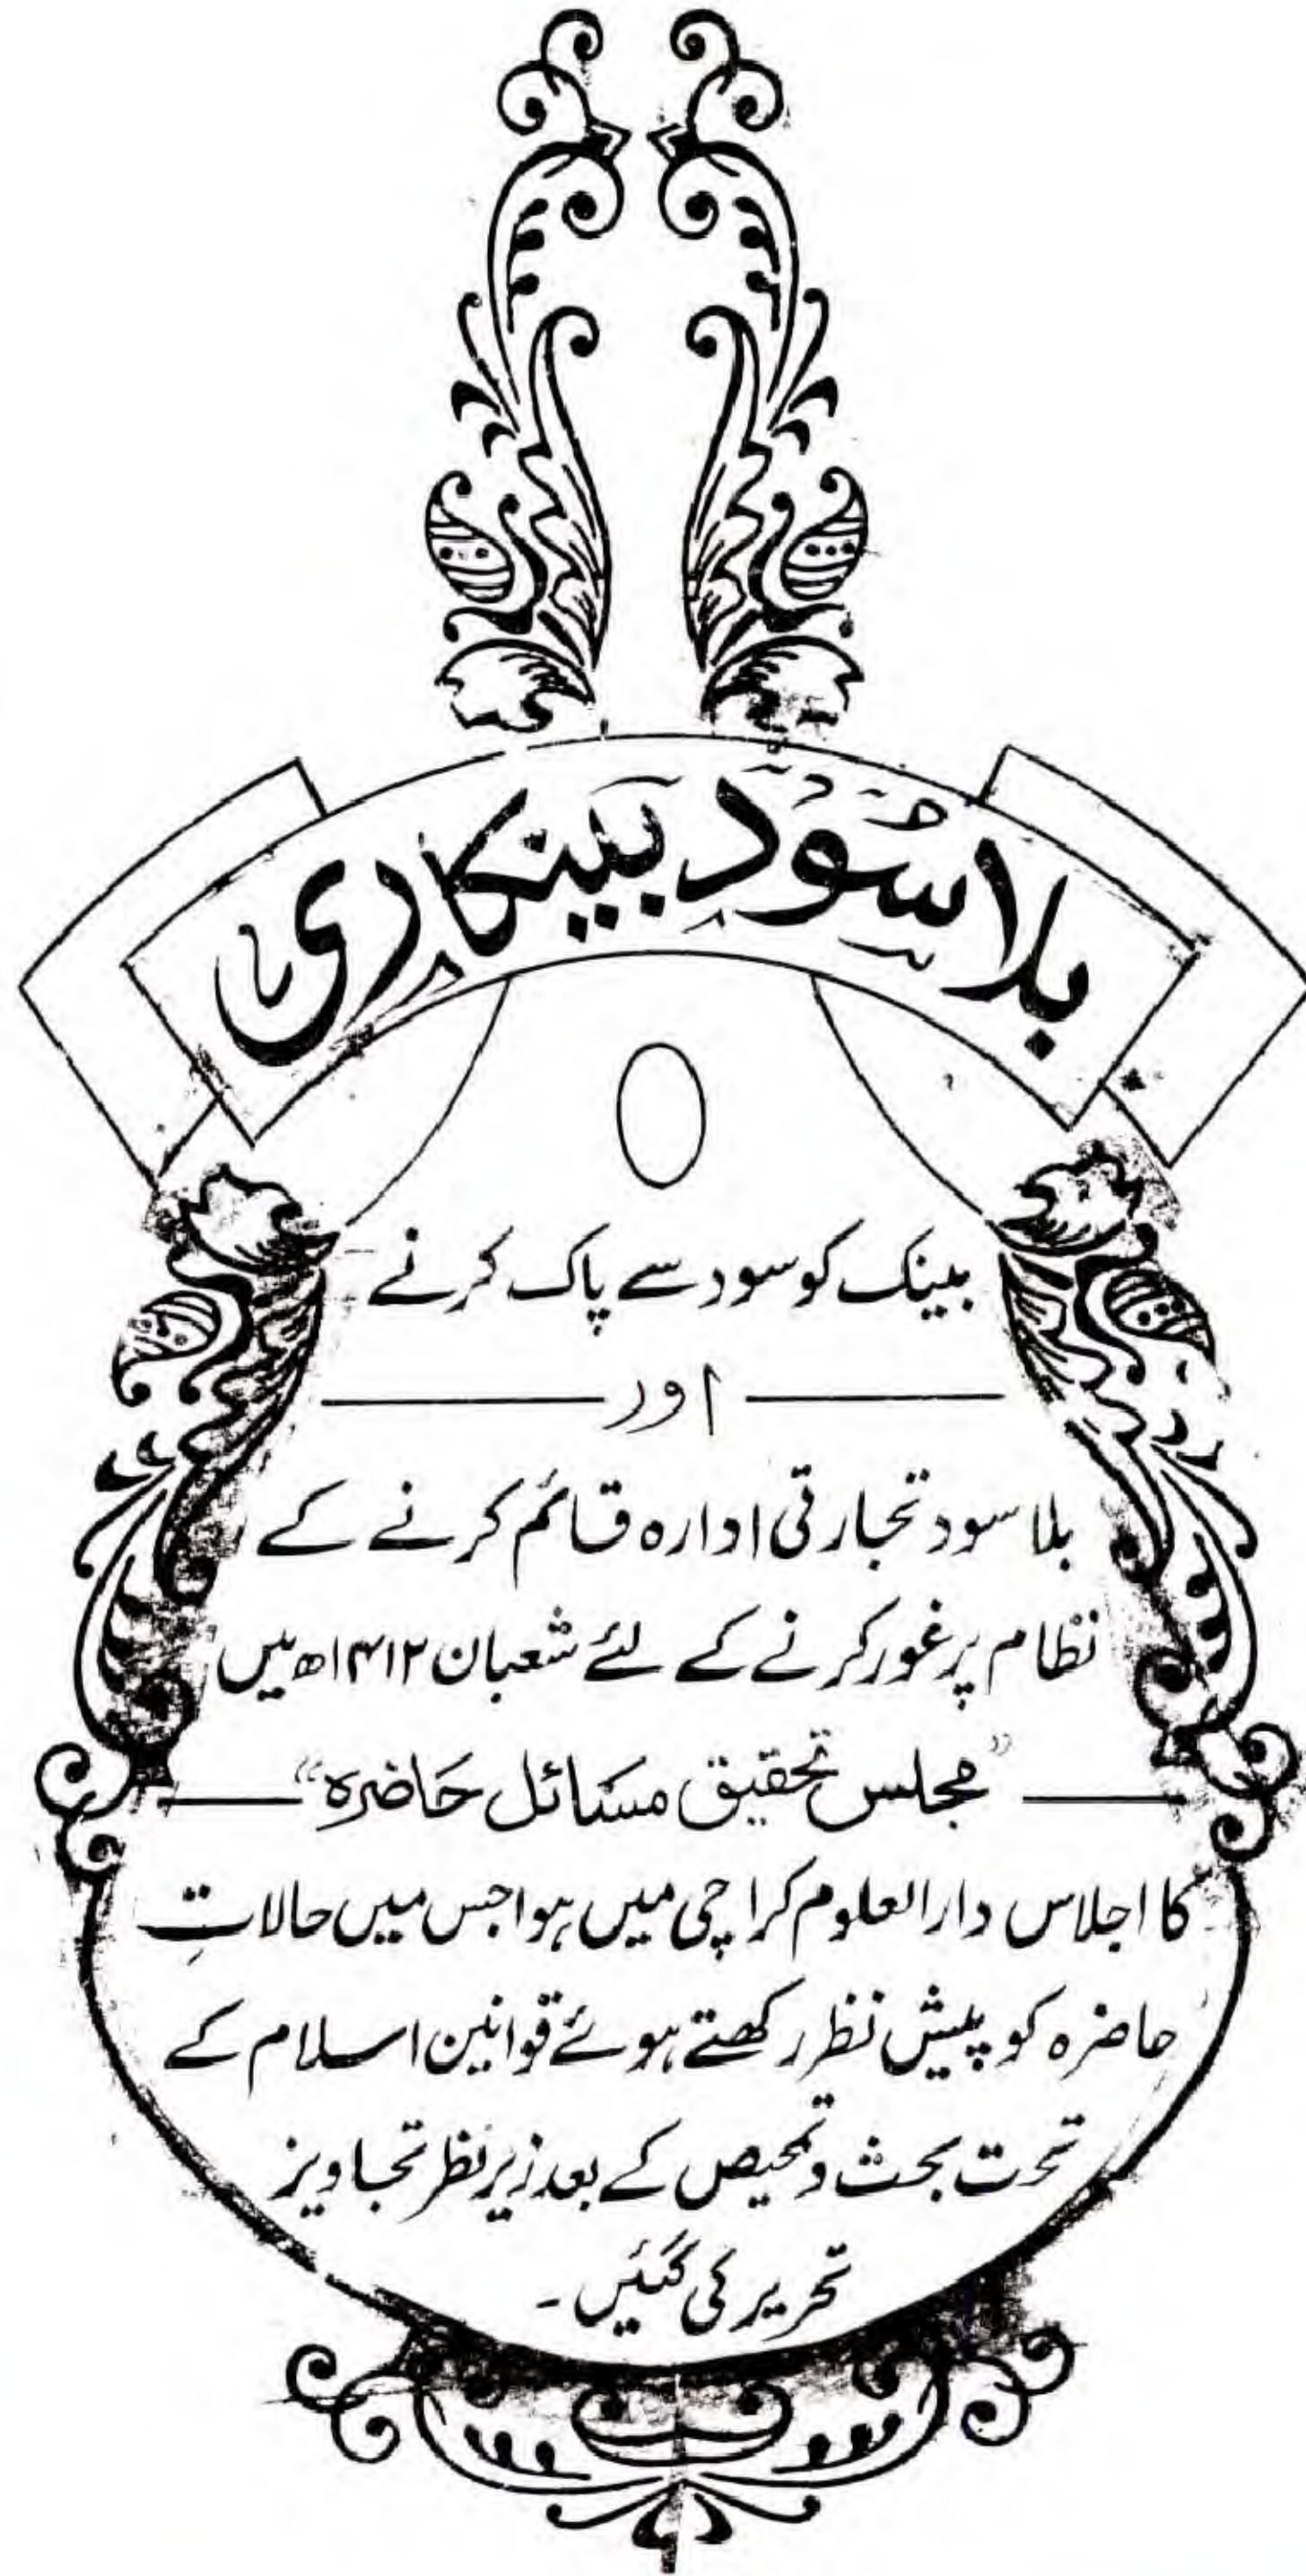 بلا سُوْد بَینکاری
بینک کو سود سے پاک کرنے
اور
بلا سود تجارتی ادارہ قائم کرنے کے
نظام پر غور کرنے کے لئے شعبان ۱۴۱۲ھ میں
”مجلس تحقیق مسَائل حَاضرہ“
کا اجلاس دارالعلوم کراچی میں ہوا جس میں حالاتِ
حاضرہ کو پیش نظر رکھتے ہوئے قوانین اسلام کے
تحت بحث و تمحیص کے بعد زیر نظر تجاویز
تحریر کی گئیں۔